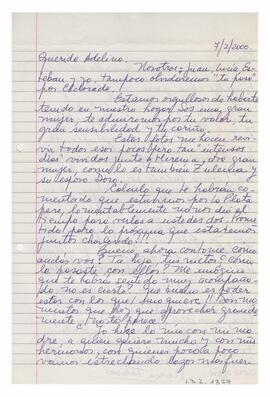 7/2/2000.
Querida Adelina:
Nosotros: Juan, Lucía, Es-
teban y yo, tampoco olvidaremos "tu paso"
por Cholorado.
Estamos orgullosos de haberte
tenido en nuestro hogar. Sos una gran
mujer, te admiramos por tu valor, tu
gran sensibilidad y tu cariño.
Estas fotos me hacen revi-
vir todos esos pocos pero tan "intensos
días" vividos junto a Herenia, otra gran
mujer, como lo es también Zulema y
su esposo José.
Calculo que te habrán co-
mentado que estuvimos por La Plata
pero, lamentablemente no nos dio el
tiempo para verlas a ustedes dos. Prome-
todo para la próxima que estaremos
juntos charlando!!
Bueno, ahora contame cómo
andás vos? Tu hija, tus nietos? cómo
la pasaste con ellos? Me imagino
que te habrás sentido muy acompaña-
da no es cierto? Qué lindo es poder
estar con los que uno quiere!! Son mo-
mentos que hay que aprovechar grande-
mente, no te parece?
Yo hice lo mío con mi ma-
dre, a quien quiero mucho y con mis
hermanos, con quienes poco a poco
vamos estrechando lazos más fuer-